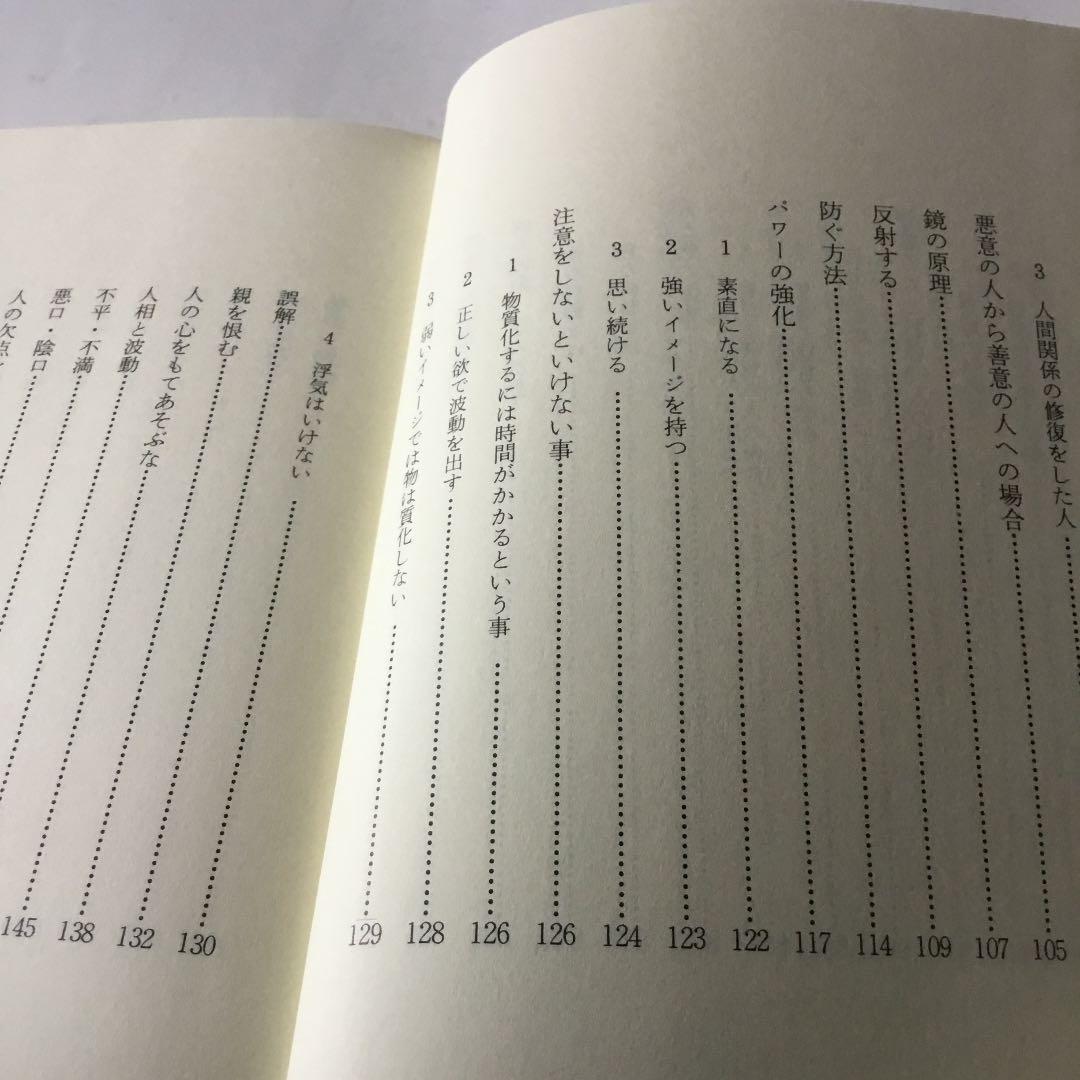 3 人間関係の修復をした人
悪意の人から善意の人への場合 105
鏡の原理 107
反射する 109
防ぐ方法 114
パワーの強化 117
1 素直になる 122
2 強いイメージを持つ 123
3 思い続ける 124
注意をしないといけない事 126
1 物質化するには時間がかかるという事 126
2 正しい欲で波動を出す 128
3 弱いイメージでは物は質化しない 129
4 浮気はいけない 130
誤解 132
親を恨む 138
人の心をもてあそぶな 145
人相と波動
不平・不満
悪口・陰口
人の欠点